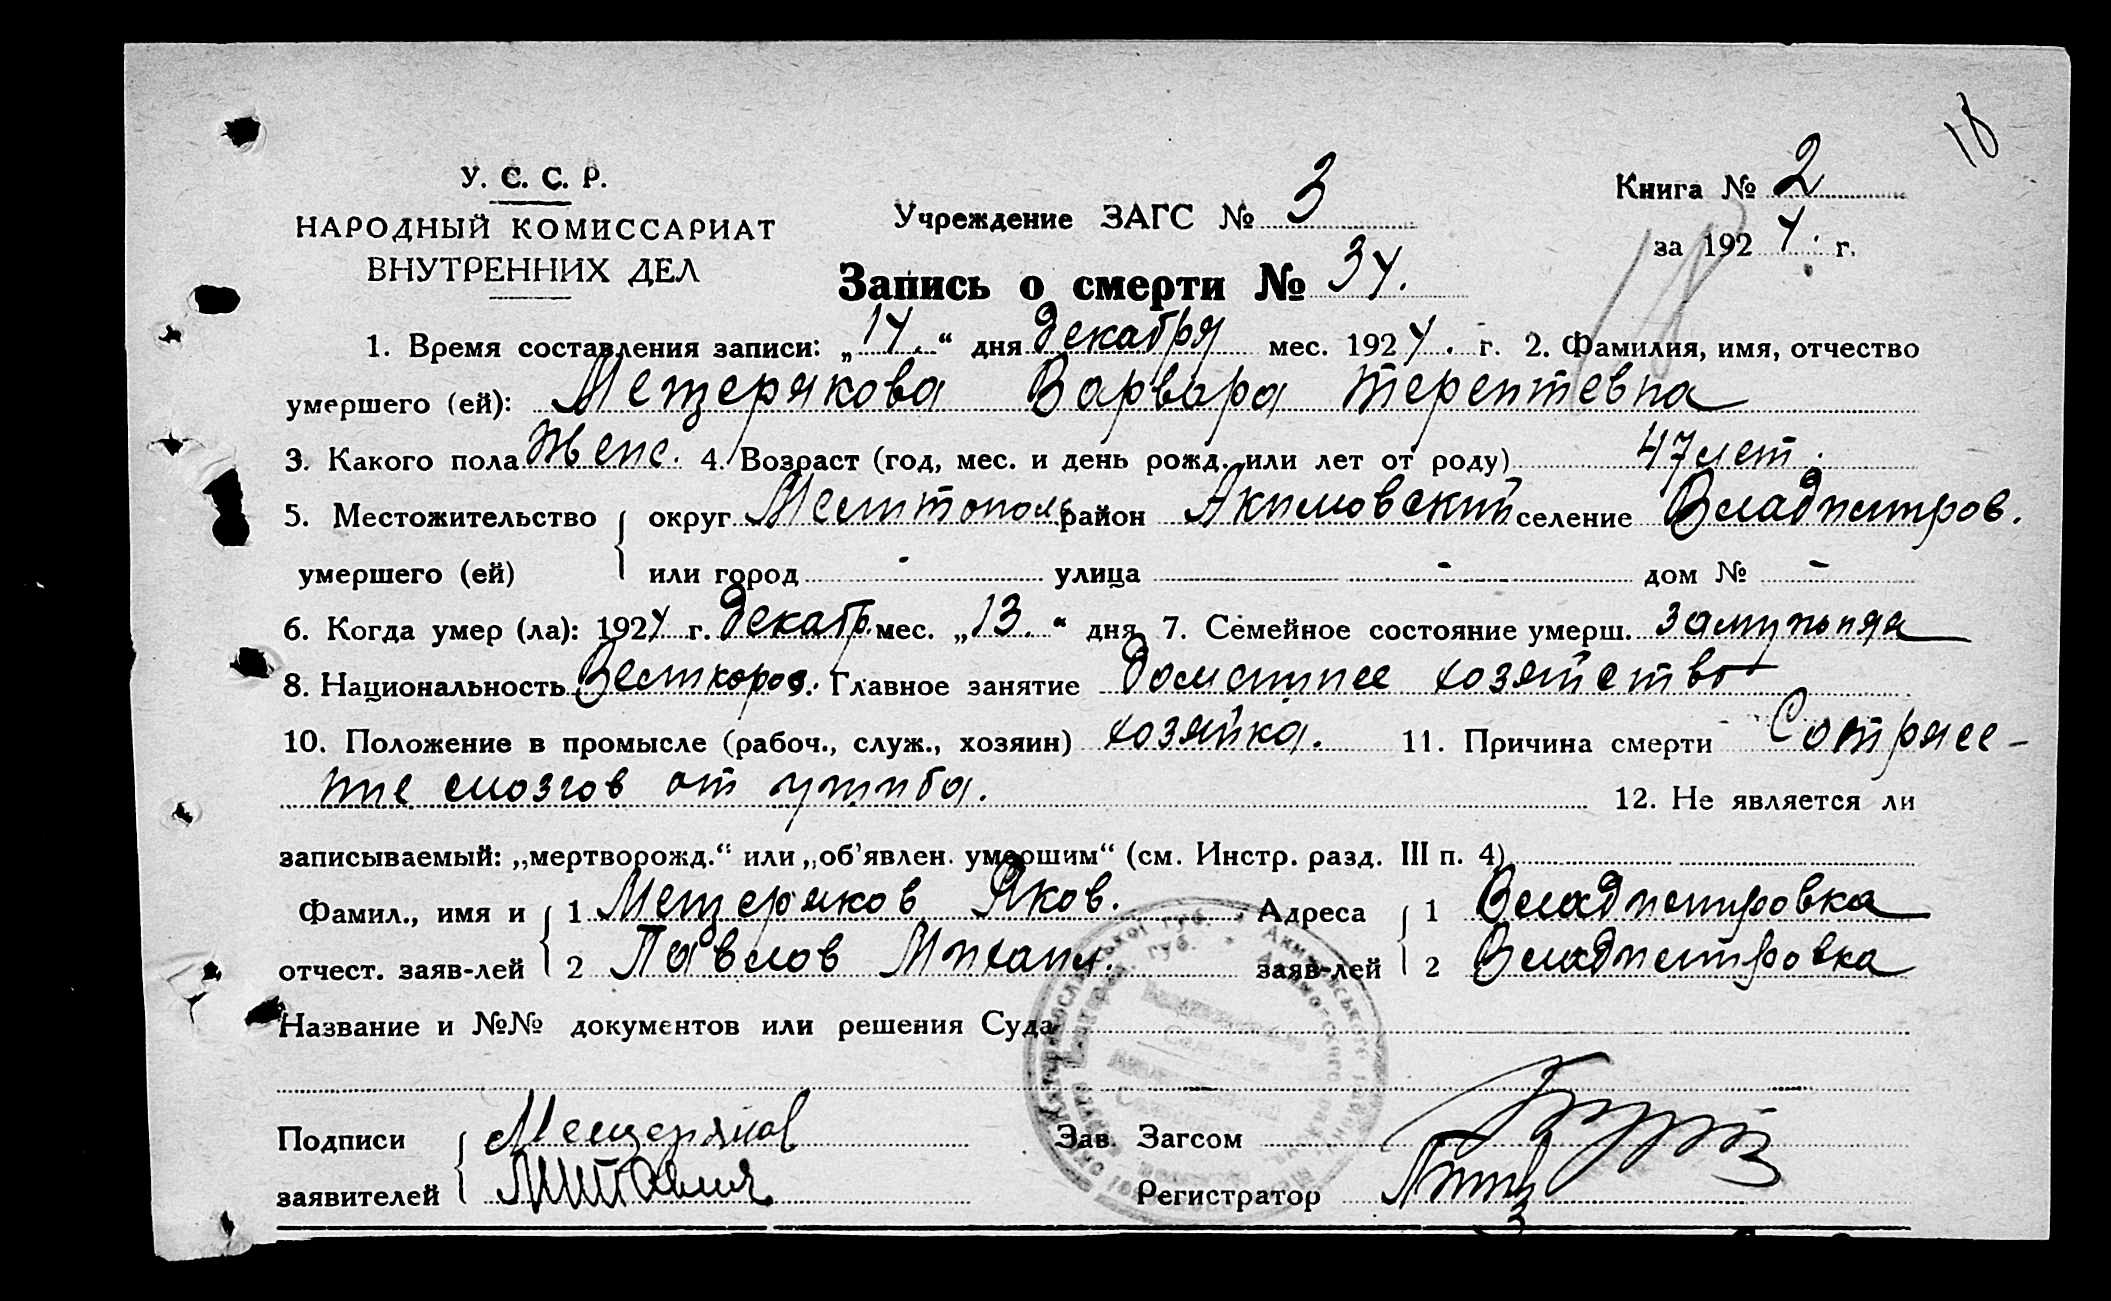 18
У. С. С. Р.
НАРОДНЫЙ КОМИССАРИАТ
ВНУТРЕННИХ ДЕЛ
Учреждение ЗАГС № 3
Книга № 2
за 1924. г.
18
Запись о смерти № 34.
1. Время составления записи: „14.“ дня декабря мес. 1924. г. 2. Фамилия, имя, отчество
умершего (ей): Мещерякова Варвара Терентевна
3. Какого пола Женс. 4. Возраст (год, мес. и день рожд. или лет от роду) 47 лет.
5. Местожительство округ Мелитополь район Акимовский селение Владпетров.
умершего (ей) или город - улица - дом № -
6. Когда умер (ла): 1924 г. декабр. мес. „13.“ дня 7. Семейное состояние умерш. замужняя
8. Национальность Великорос. 9. Главное занятие Домашнее хозяйство
10. Положение в промысле (рабоч., служ., хозяин) хозяйка. 11. Причина смерти Сотрясе-
ние мозгов от ушиба.
12. Не является ли
записываемый: „мертворожд.“ или „об’явлен. умершим“ (см. Инстр. разд. III п. 4)
Фамил., имя и 1 Мещеряков Яков. Адреса 1 Владпетровка
отчест. заяв-лей 2 Павлов Михаил. заяв-лей 2 Владпетровка
Название и №№ документов или решения Суда
Подписи Мещеряков Зав. Загсом
заявителей Регистратор